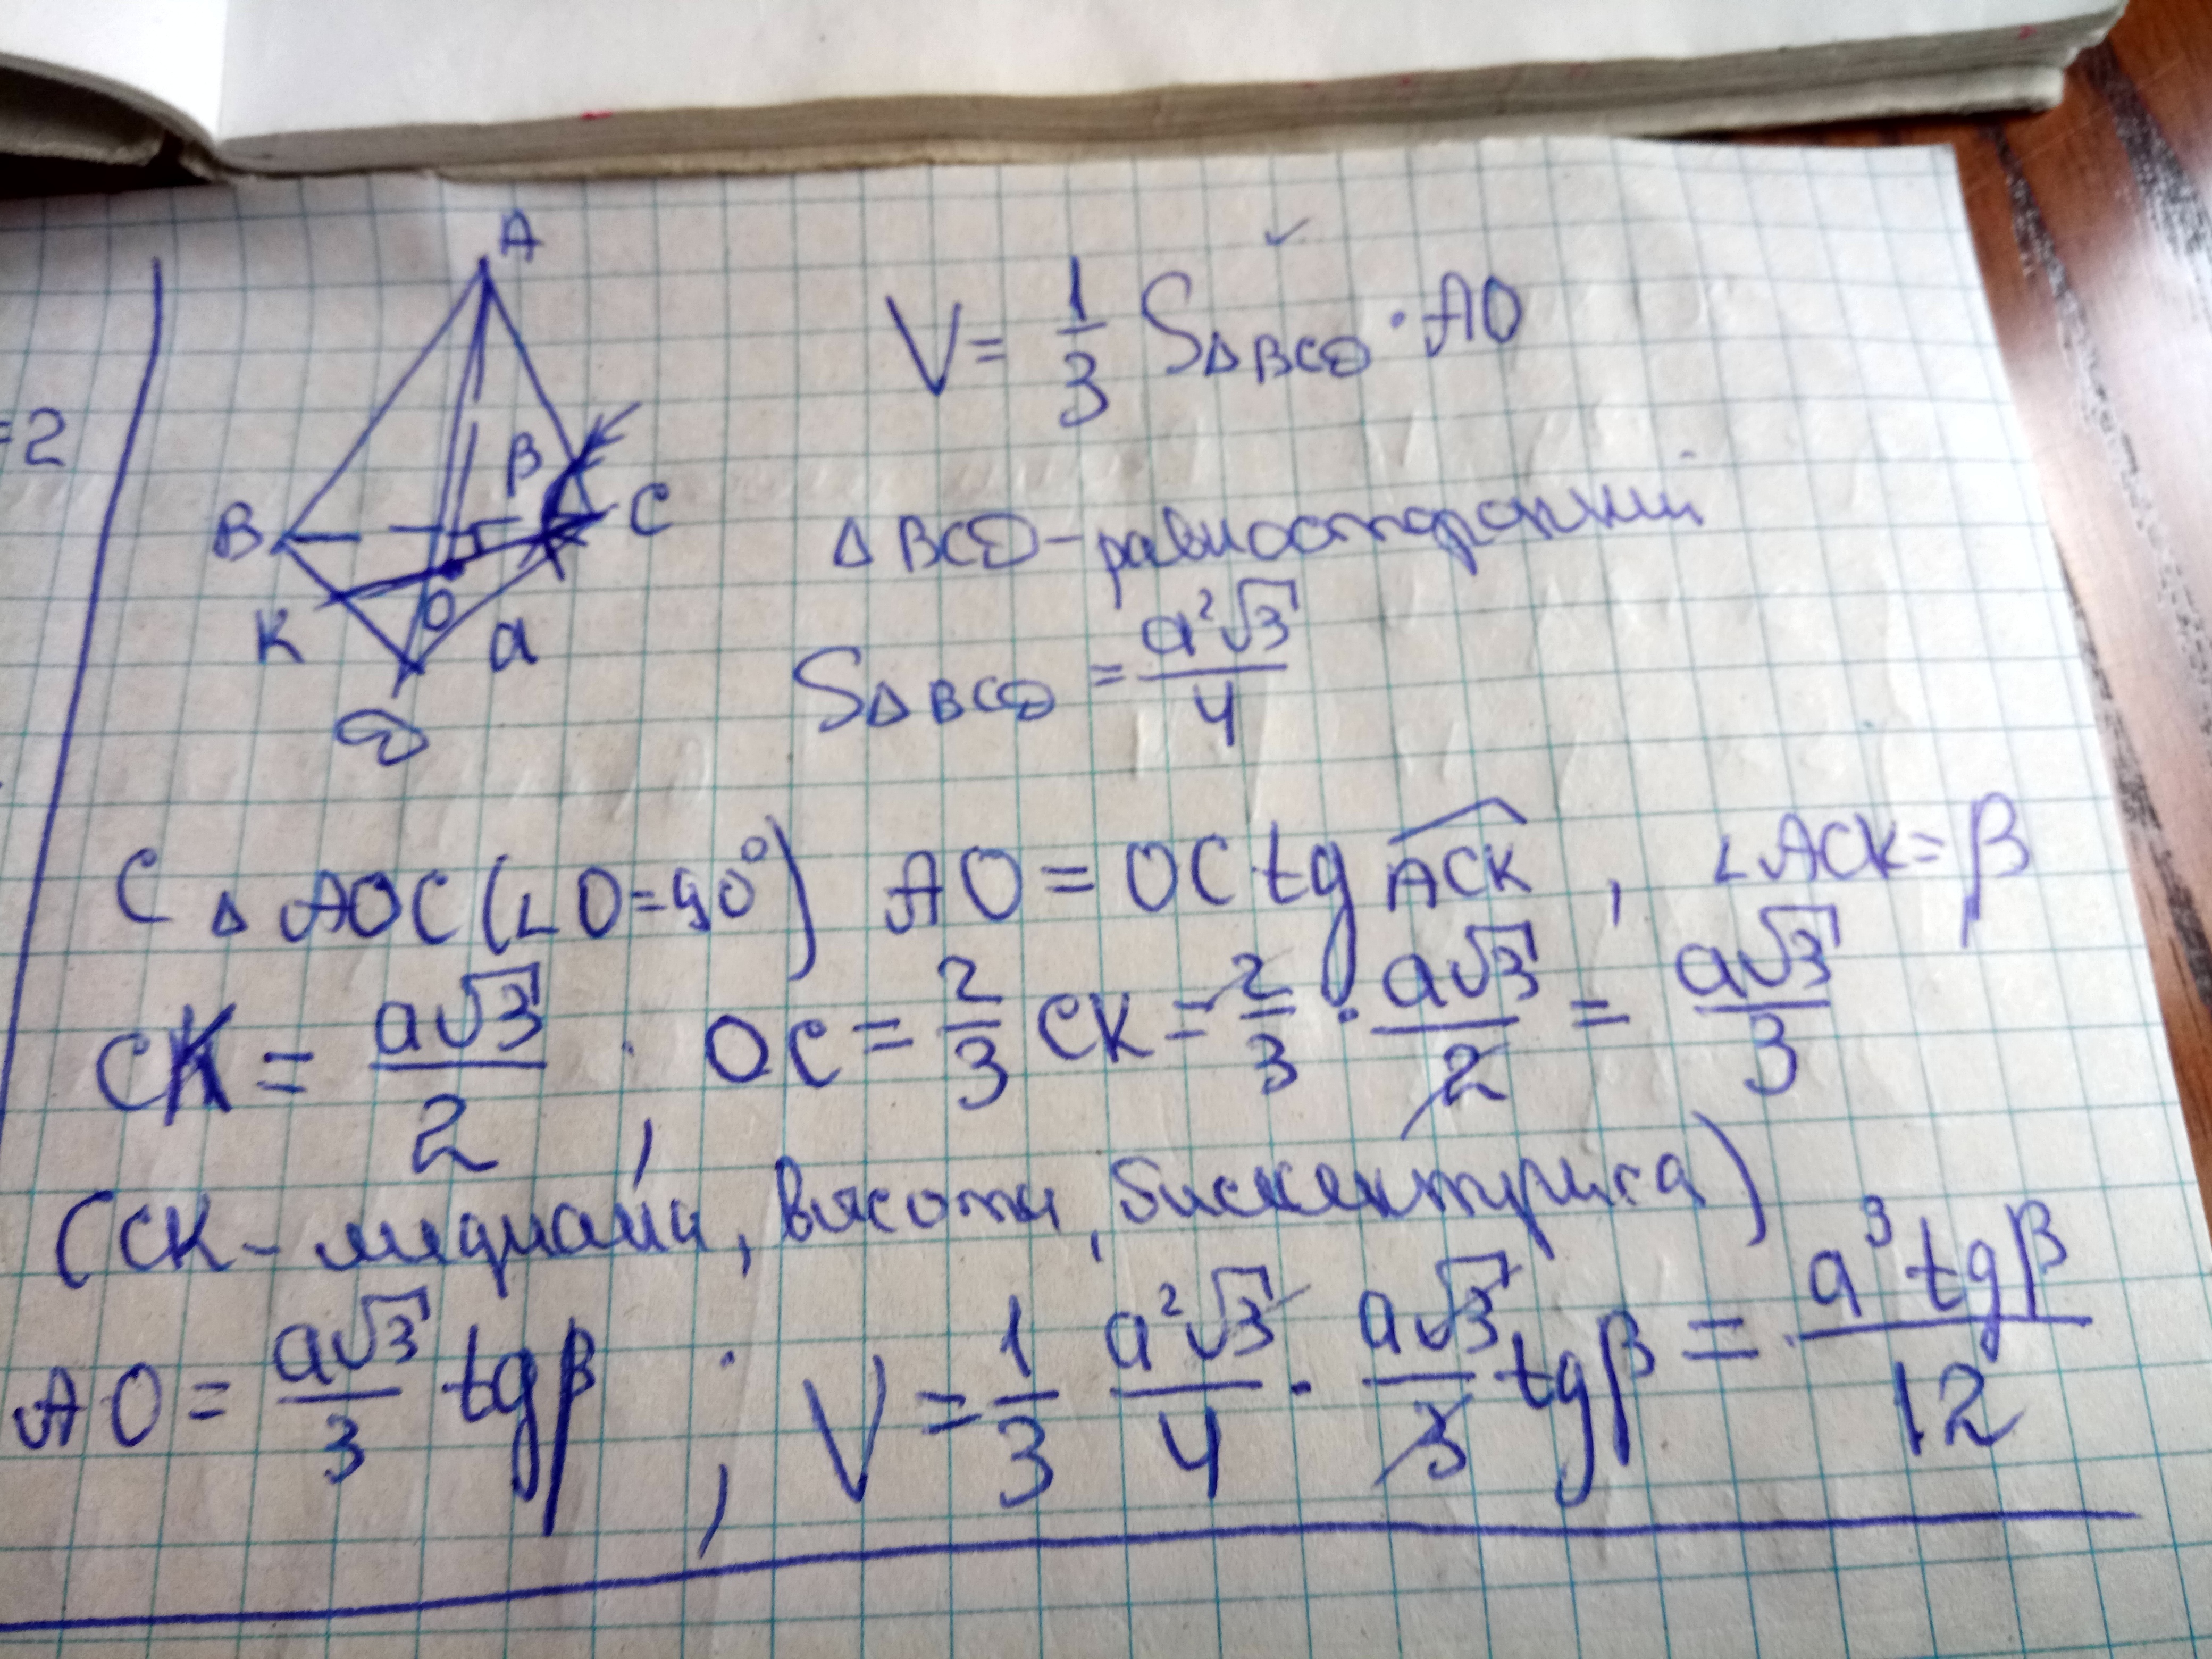 =2
A
B
β
C
K
O
a
D
V = 1/3 S△BCD · AO
△BCD - равносторонний
S△BCD = a²√3/4
C △AOC (∠O=90°) AO = OC tg ACK, ∠ACK = β
CK = a√3/2, OC = 2/3 CK = 2/3 · a√3/2 = a√3/3
(CK - медиана, высота, биссектриса)
AO = a√3/3 tgβ; V = 1/3 a²√3/4 · a√3/3 tgβ = a³tgβ/12